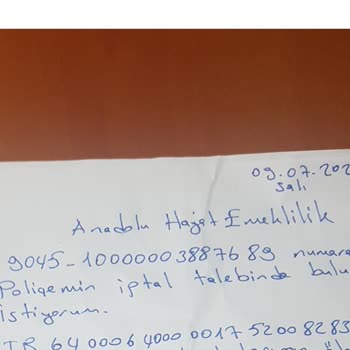 09.07.202
Salı
Anadolu Hayat Emeklilik
9045-1000000388 7689 numara
Poliçemin iptal talebinde bulu
istiyorum.
TR 64 0006 4000 0017 5200 8283